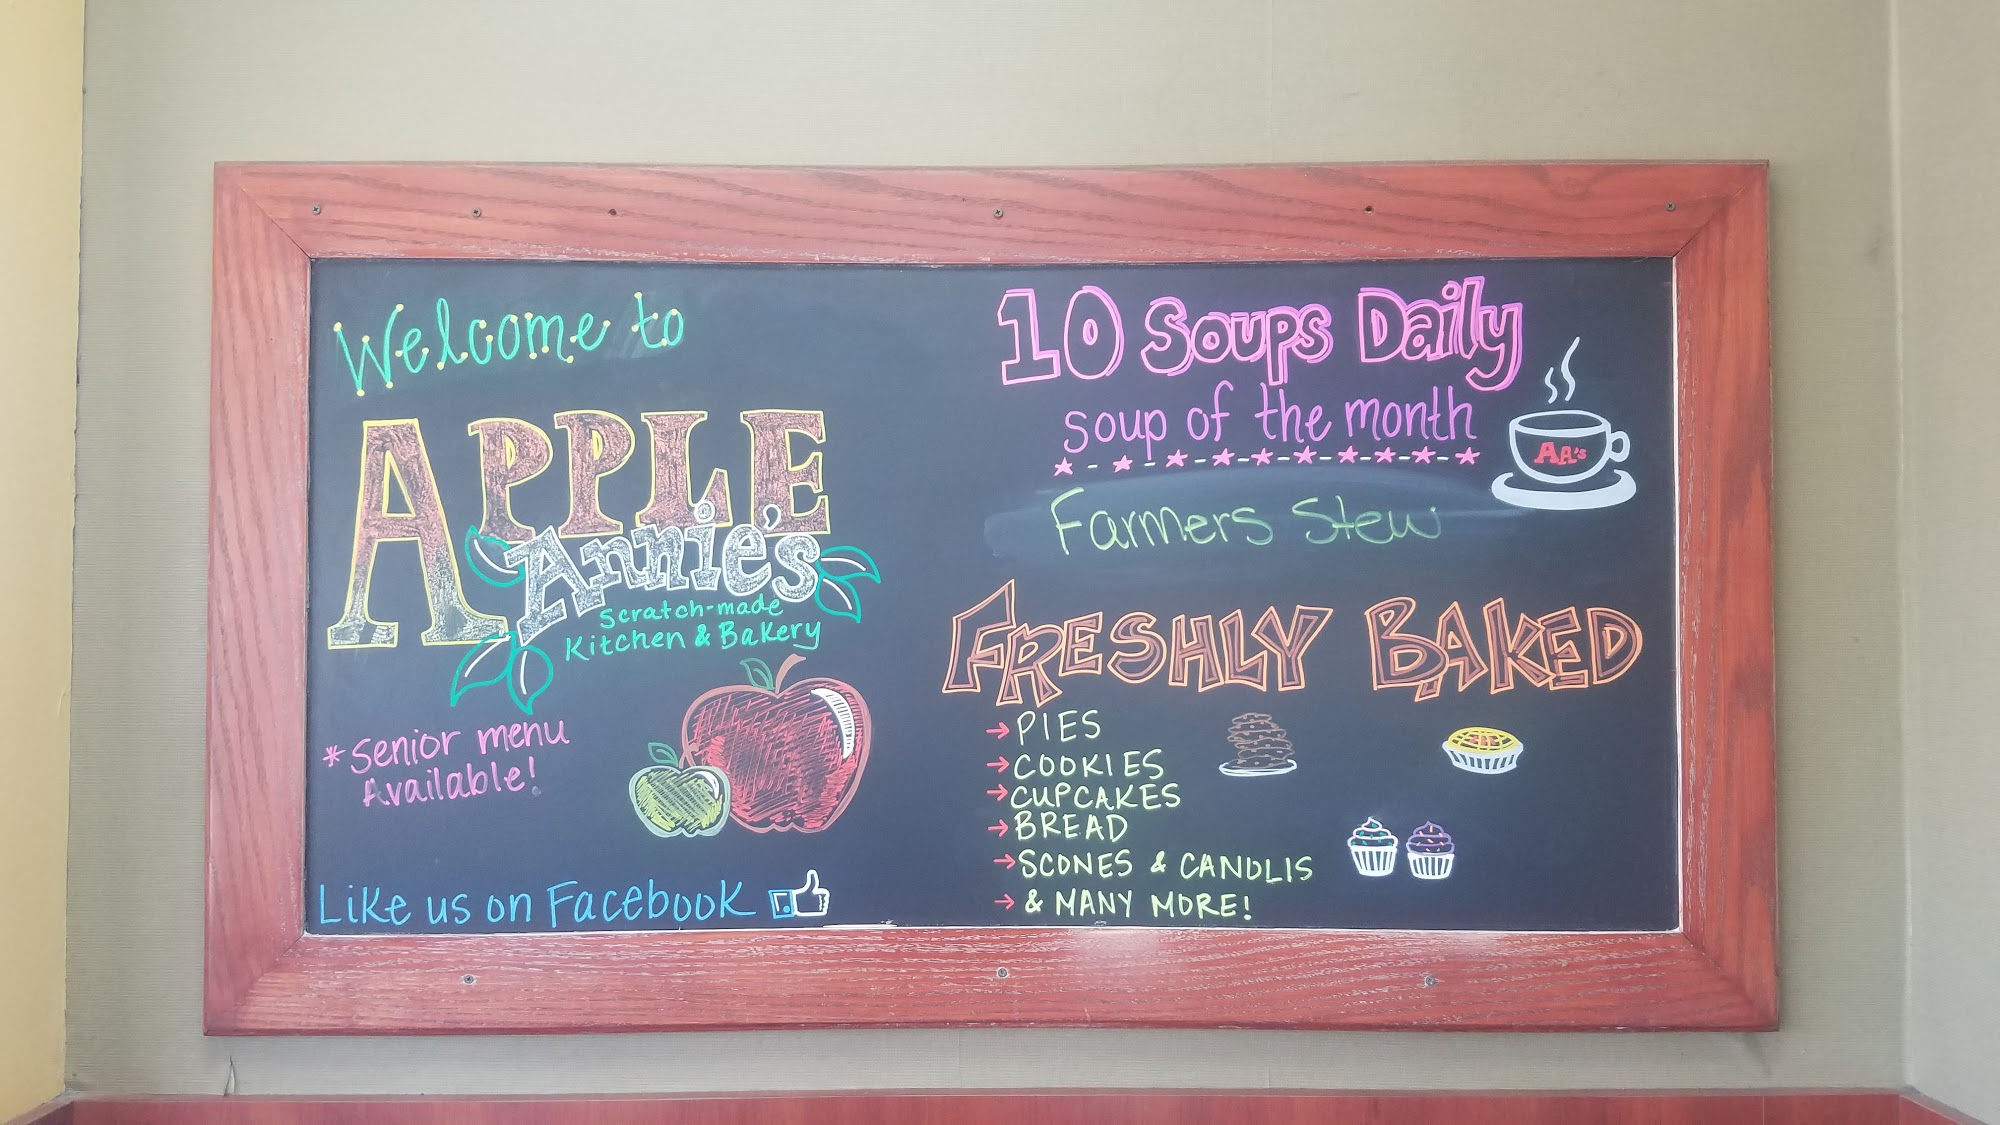 Welcome to
APPLE
Annie's
Scratch-made
Kitchen & Bakery
* Senior menu
Available!
Like us on Facebook
10 Soups Daily
soup of the month
AA's
Farmers Stew
FRESHLY BAKED
→ PIES
→ COOKIES
→ CUPCAKES
→ BREAD
→ SCONES & CANOLIS
→ & MANY MORE!